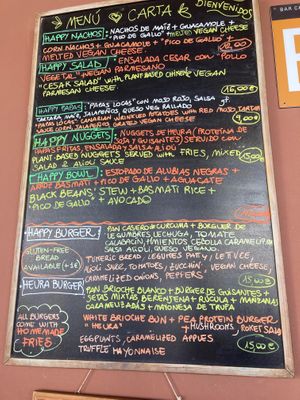 MENÚ CARTA BIENVENIDOS
HAPPY NACHOS: NACHOS DE MAÍZ + GUACAMOLE +
"PICO DE GALLO" + MELTED VEGAN CHEESE
CORN NACHOS + GUACAMOLE + "PICO DE GALLO" +
MELTED VEGAN CHEESE 16,00€
HAPPY SALAD: ENSALADA CESAR CON "POLLO
VEGETAL" + VEGAN PARMESANO
"CESAR SALAD" WITH PLANT BASED CHICKEN VEGAN
PARMESAN CHEESE 16,00€
HAPPY PAPAS: "PAPAS LOCAS" CON MOJO ROJO, SALSA
TARTARA MAIZ, JALAPEÑOS QUESO VEG RALLADO
"PAPAS LOCAS" CANARIAN WRINKLED POTATOES WITH RED MOJO, TARTAR
SAUCE CORN, JALAPEÑOS GRATED VEGAN CHEESE 9,00€
HAPPY NUGGETS: NUGGETS DE HEURA (PROTEINA DE
SOJA Y GUISANTES) SERVIDO CON
PAPAS FRITAS, ENSALADA Y SALSA ALIOLI
PLANT-BASED NUGGETS SERVED WITH FRIES, MIXED
SALAD & ALIOLI SAUCE 15,00€
HAPPY BOWL: ESTOFADO DE ALUBIAS NEGRAS +
ARROZ BASMATI + PICO DE GALLO + AGUACATE
BLACK BEANS STEW + BASMATI RICE +
"PICO DE GALLO" + AVOCADO
HAPPY BURGER: PAN CASERO CURCUMA + BURGUER DE
LEGUMBRES, LECHUGA, TOMATE
CALABACIN, PIMIENTOS CEBOLLA CARAMELIZADA
SALSA ALIOLI, QUESO VEGANO.
GLUTEN-FREE
BREAD
AVAILABLE (+1€)
TUMERIC BREAD, LEGUMES PATTY, LETTUCE,
ALIOLI SAUCE, TOMATOES, ZUCCHINI VEGAN CHEESE,
CARAMELIZED ONIONS, PEPPERS 15,00€
HEURA BURGER
PAN BRIOCHE BLANCO + BURGER DE GUISANTES +
SETAS MIXTAS BERENJENA + RÚCULA + MANZANAS
CARAMELIZADAS + MAYONESA DE TRUFA
ALL BURGERS
COME WITH
HOMEMADE
FRIES
WHITE BRIOCHE BUN + PEA PROTEIN BURGER
"HEURA" + MUSHROOMS, ROCKET SALAD
EGGPLANTS, CARAMELIZED APPLES
TRUFFLE MAYONNAISE 15,00€